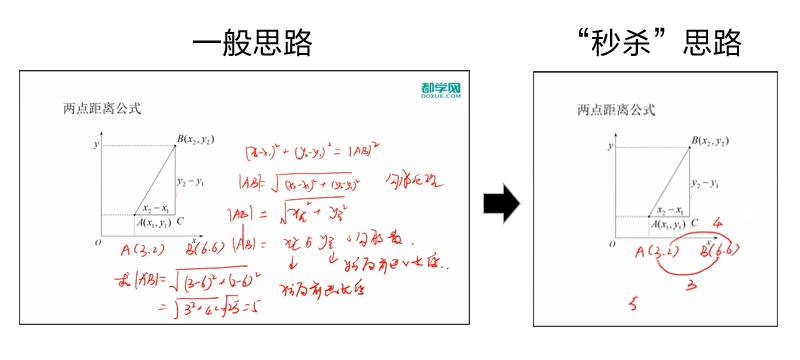 一般思路
“秒杀”思路
都学网
DOXUE.COM
两点距离公式
y
B(x₂, y₂)
y₂ − y₁
x₂ − x₁
A(x₁, y₁)
C
O
x
(x₂-x₁)²+(y₂-y₁)²=|AB|²
|AB|=√(x₂-x₁)²+(y₂-y₁)² 勾股定理
|AB|=√x差²+y差²
A(3.2) B(6.6)
|AB|= x差与y差の勾股数.
求|AB|=√(3-6)²+(2-6)²
=√3²+4²=√25=5
两点距离公式
y
B(x₂, y₂)
y₂ − y₁
x₂ − x₁
A(x₁, y₁)
C
O
x
4
A(3.2) B(6.6)
3
5